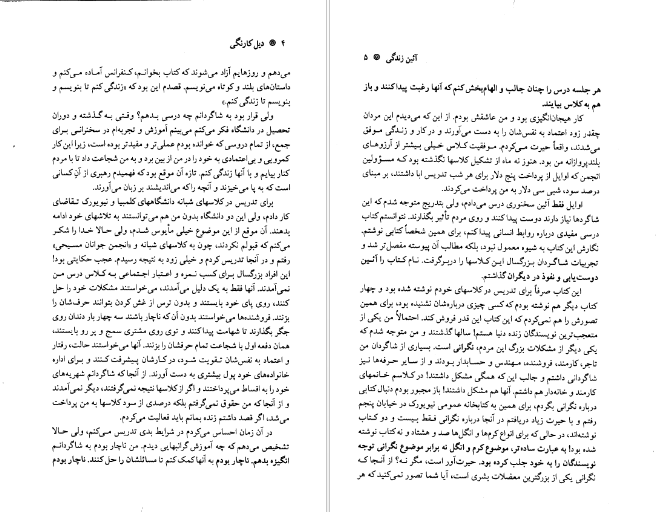 ۴ ❁ دیل کارنگی
می‌دهم و روزهایم آزاد می‌شوند که کتاب بخوانم، کنفرانس آماده می‌کنم و
داستان‌های بلند و کوتاه می‌نویسم. قصدم این بود که «زندگی کنم تا بنویسم و
بنویسم تا زندگی کنم.»
ولی قرار بود به شاگردانم چه درسی بدهم؟ وقتی به گذشته و دوران
تحصیل در دانشگاه فکر می‌کنم می‌بینم آموزش و تجربه‌ام در سخنرانی برای
جمع، از تمام دروسی که خوانده بودم عملی‌تر و مفیدتر بوده است، زیرا این کار
کمرویی و بی‌اعتمادی به خود را در من از بین برد و به من شجاعت داد تا با مردم
کنار بیایم و با آنها زندگی کنم. تازه آن موقع بود که فهمیدم رهبری از آن کسانی
است که به پا می‌خیزند و آنچه را که می‌اندیشند بر زبان می‌آورند.
برای تدریس در کلاسهای شبانه دانشگاههای کلمبیا و نیویورک تقاضای
کار دادم، ولی این دو دانشگاه بدون من هم می‌توانستند به تلاشهای خود ادامه
بدهند. آن موقع از این موضوع خیلی مأیوس شدم، ولی حالا خدا را شکر
می‌کنم که قبولم نکردند، چون به کلاسهای شبانه و «انجمن جوانان مسیحی»
رفتم و در آنجا تدریس کردم و خیلی زود به نتیجه رسیدم. عجب حکایتی بود!
این افراد بزرگسال برای کسب نمره و اعتبار اجتماعی به کلاس درس من
نمی‌آمدند. آنها فقط به یک دلیل می‌آمدند، می‌خواستند مشکلات خود را حل
کنند، روی پای خود بایستند و بدون ترس از غش کردن بتوانند حرف‌شان را
بزنند. فروشنده‌ها می‌خواستند بدون آن که ناچار باشند سه چهار بار دندان روی
جگر بگذارند تا شهامت پیدا کنند و توی روی مشتری سمج و پر رو بایستند،
همان دفعه اول با شجاعت تمام حرفشان را بزنند. آنها می‌خواستند حالت، رفتار
و اعتماد به نفس‌شان تقویت شود، در کارشان پیشرفت کنند و برای اداره
خانواده‌های خود پول بیشتری به دست آورند. از آنجا که شاگردانم شهریه‌های
خود را به اقساط می‌پرداختند و اگر از کلاسها نتیجه نمی‌گرفتند، دیگر نمی‌آمدند
و از آنجا که من حقوق نمی‌گرفتم بلکه درصدی از سود کلاسها به من پرداخت
می‌شد، اگر قصد داشتم زنده بمانم باید فعالیت می‌کردم.
در آن زمان احساس می‌کردم در شرایط بدی تدریس می‌کنم، ولی حالا
تشخیص می‌دهم که چه آموزش گرانبهایی دیدم. من ناچار بودم به شاگردانم
انگیزه بدهم. ناچار بودم به آنها کمک کنم تا مسائلشان را حل کنند. ناچار بودم
آئین زندگی ❁ ۵
هر جلسه درس را چنان جالب و الهام‌بخش کنم که آنها رغبت پیدا کنند و باز
هم به کلاس بیایند.
کار هیجان‌انگیزی بود و من عاشقش بودم. از این که می‌دیدم این مردان
چقدر زود اعتماد به نفس‌شان را به دست می‌آورند و در کار و زندگی موفق
می‌شدند، واقعاً حیرت می‌کردم. موفقیت کلاس خیلی بیشتر از آرزوهای
بلندپروازانه من بود. هنوز نه ماه از تشکیل کلاسها نگذشته بود که مسؤولین
انجمن که اوایل از پرداخت پنج دلار برای هر شب تدریس ابا داشتند، بر مبنای
درصد سود، شبی سی دلار به من پرداخت می‌کردند.
اوایل فقط آئین سخنوری درس می‌دادم، ولی بتدریج متوجه شدم که این
شاگردها نیاز دارند دوست پیدا کنند و روی مردم تأثیر بگذارند. نتوانستم کتاب
درسی مفیدی درباره روابط انسانی پیدا کنم، برای همین شخصاً کتابی نوشتم.
نگارش این کتاب به شیوه معمول نبود، بلکه مطالب آن پیوسته مفصل‌تر شد و
تجربیات شاگردان بزرگسال این کلاسها را دربرگرفت. نام کتاب را آئین
دوست‌یابی و نفوذ در دیگران گذاشتم.
این کتاب صرفاً برای تدریس در کلاسهای خودم نوشته شده بود و چهار
کتاب دیگر هم نوشته بودم که کسی چیزی درباره‌شان نشنیده بود، برای همین
تصورش را هم نمی‌کردم که این کتاب این قدر فروش کند. احتمالاً من یکی از
متعجب‌ترین نویسندگان زنده دنیا هستم! سالها گذشتند و من متوجه شدم که
یکی دیگر از مشکلات بزرگ این مردم، نگرانی است. بسیاری از شاگردان من
تاجر، کارمند، فروشنده، مهندس و حسابدار بودند و از سایر حرفه‌ها نیز
شاگردانی داشتم و جالب این که همگی مشکل داشتند! در کلاسم خانمهای
کارمند و خانه‌دار هم داشتم. آنها هم مشکل داشتند! باز مجبور بودم دنبال کتابی
درباره نگرانی بگردم، برای همین به کتابخانه عمومی نیویورک در خیابان پنجم
رفتم و با حیرت زیاد دریافتم در آنجا درباره نگرانی فقط بیست و دو کتاب
نوشته‌اند، در حالی که برای انواع کرم‌ها و انگل‌ها صد و هشتاد و نه کتاب نوشته
شده بود! به عبارت ساده‌تر، موضوع کرم و انگل نه برابر موضوع نگرانی توجه
نویسندگان را به خود جلب کرده بود. حیرت‌آور است، مگر نه؟ از آنجا که
نگرانی یکی از بزرگترین معضلات بشری است، آیا شما تصور نمی‌کنید که هر